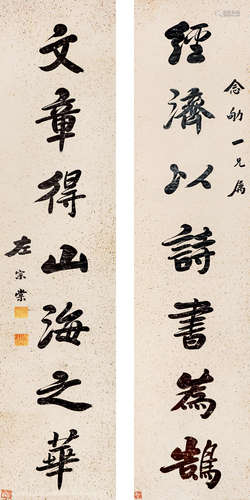 念劬一兄属
經濟以詩書為鵠
文章得山海之華
左宗棠